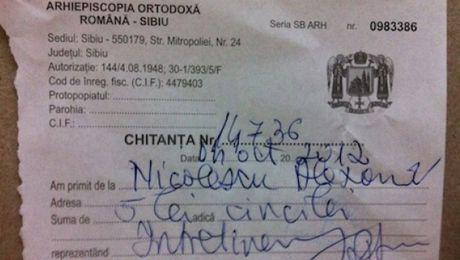 ARHIEPISCOPIA ORTODOXĂ
ROMÂNĂ - SIBIU
Seria SB ARH nr. 0983386
Sediul: Sibiu - 550179, Str. Mitropoliei, Nr. 24
Județul: Sibiu
Autorizație: 144/4.08.1948; 30-1/393/5/F
Cod de înreg. fisc. (C.I.F.): 4479403
Protopopiatul:
Parohia:
C.I.F.:
CHITANȚA Nr. 14736
Data 04 oct. 2012
Am primit de la Nicolescu
Adresa
Suma de 5 lei adică cinci lei
reprezentând